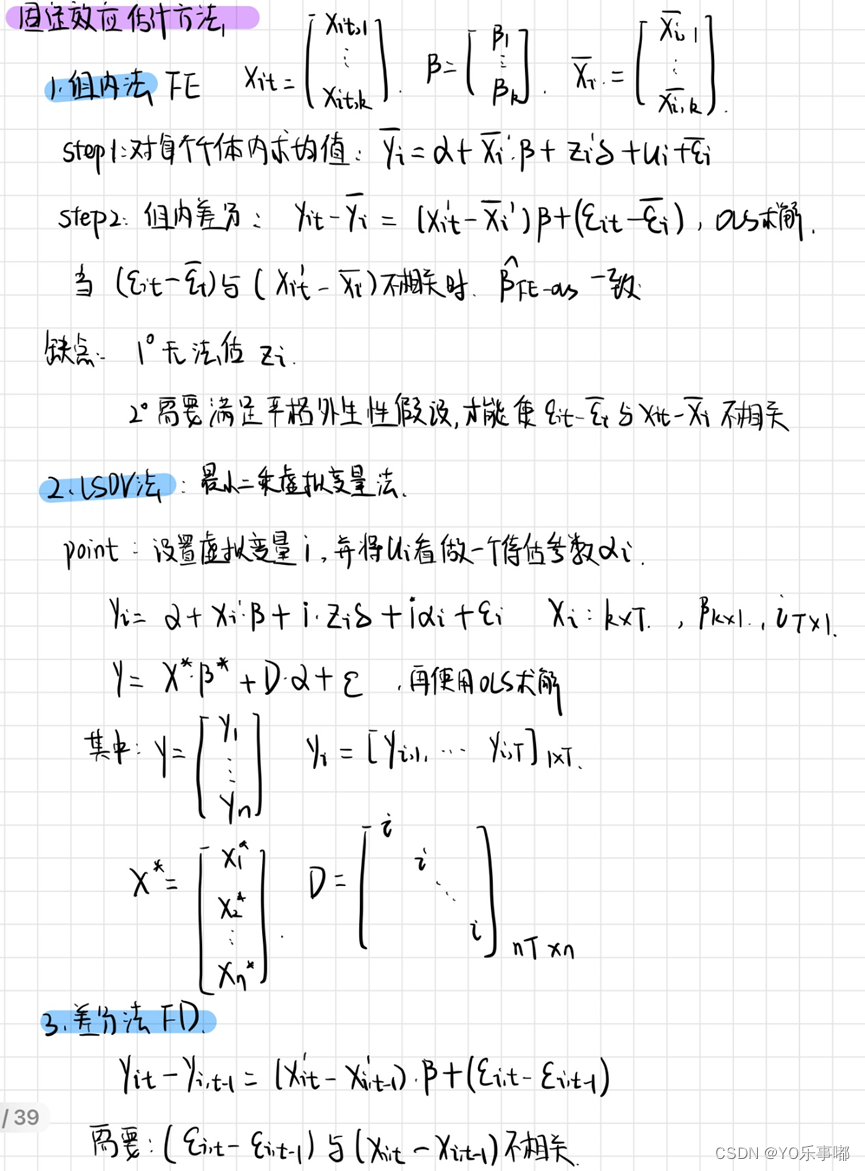 固定效应估计方法
1.组内法 FE Xit = [Xit,1 ⋮ Xit,k] . β = [β1 ⋮ βk] . X̄i. = [X̄i,1 ⋮ X̄i,k] .
step1:对每个个体内求均值: ȳi = α + X̄i'.β + zi'δ + ui + ε̄i
step2: 组内差分: yit - ȳi = (Xi't - X̄i')β + (εit - ε̄i), OLS求解.
当 (εit - ε̄i)与 (Xi't - X̄i)不相关时. β̂FE-ols 一致.
缺点: 1° 无法估 zi.
2° 需要满足严格外生性假设,才能使 εit - ε̄i 与 Xit - X̄i 不相关
2、LSDV法 : 最小二乘虚拟变量法.
point : 设置虚拟变量 i, 并将ui看做一个待估参数αi.
yi = α + Xi'β + i·ziδ + iαi + εi Xi : k×T. , βk×1. , iT×1.
Y = X*·β* + D·α + ε .再使用OLS求解
其中: Y = [y1 ⋮ yn] yi = [yi,1, ··· yi,T]1×T.
X* = [X1* X2* ⋮ Xn*] . D = [i i ⋱ i]nT×n
3.差分法 FD.
yit - yi,t-1 = (Xi't - Xi't-1)·β + (εi,t - εi,t-1)
需要: (εi,t - εi,t-1) 与 (Xit - Xit-1) 不相关.
/ 39
CSDN @YO乐事嘟